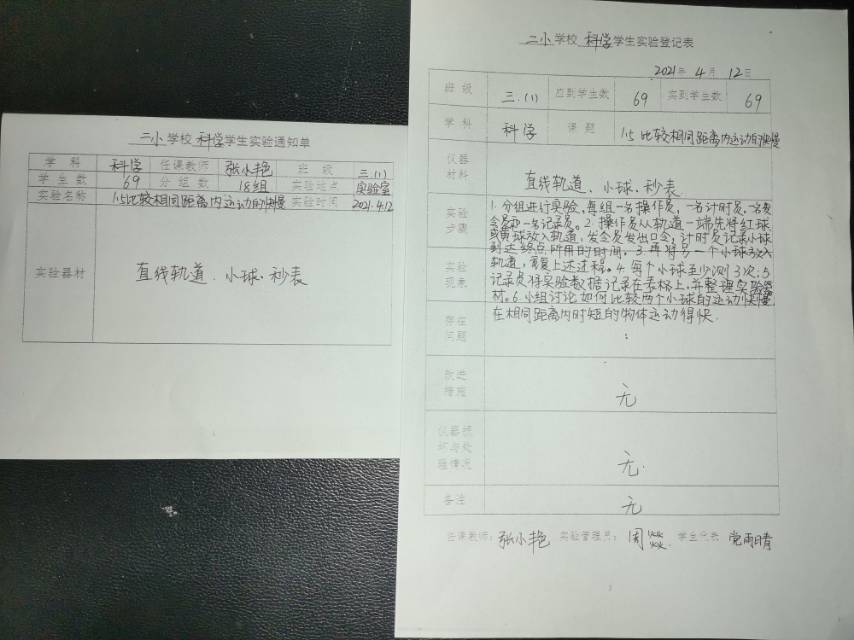 二小学校 科学学生实验通知单
学科 科学 任课教师 张小艳 班级 三.(1)
学生数 69 分组数 18组 实验地点 实验室
实验名称 1.5比较相同距离内运动的快慢 实验时间 2021.4.12
实验器材 直线轨道、小球.秒表
二小学校 科学学生实验登记表
2021年 4月 12日
班级 三.(1) 应到学生数 69 实到学生数 69
学科 科学 课题 1.5 比较相同距离内运动的快慢
仪器
材料 直线轨道、小球.秒表
实验
步骤
1.分组进行实验,每组一名操作员,一名计时员,一名发
令员和一名记录员。2.操作员从轨道一端先将红球
或黄球放入轨道,发令员发出口令,计时员记录小球
到达终点所用的时间。3.再将另一个小球放入
轨道,重复上述过程。4.每个小球至少测3次;5
实验
现象
记录员将实验数据记录在表格上,并整理实验器
材。6.小组讨论如何比较两个小球的运动快慢
在相同距离内时短的物体运动得快.
存在
问题
改进
措施 无
仪器损
坏与处
理情况 无.
备注 无
任课教师:张小艳 实验管理员:周焱焱 学生代表 党雨晴